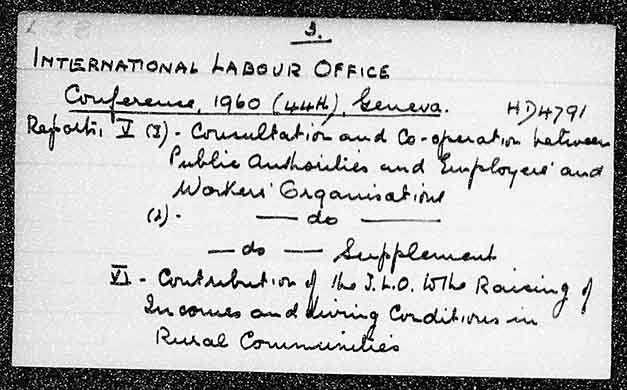 3.
INTERNATIONAL LABOUR OFFICE
Conference, 1960 (44th), Geneva. HD4791
Reports, V (1) - Consultation and Co-operation between
Public Authorities and Employers' and
Workers' Organisations
(2) - — do —
— do — Supplement
VI - Contribution of the I.L.O. to the Raising of
Incomes and Living Conditions in
Rural Communities